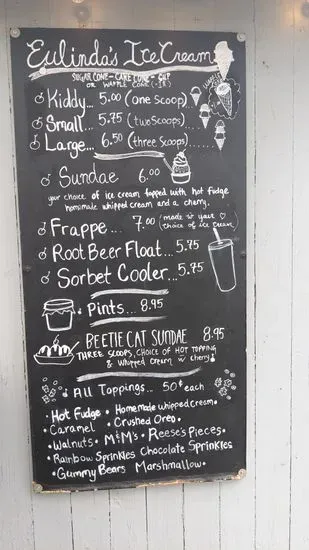 Eulinda's Ice Cream
SUGAR CONE - CAKE CONE - CUP
OR WAFFLE CONE
Kiddy... 5.00 (one scoop)
Small... 5.75 (two scoops)
Large... 6.50 (three scoops)
Sundae 6.00
your choice of ice cream topped with hot fudge
homemade whipped cream and a cherry.
Frappe... 7.00 (made w your
choice of ice cream)
Root Beer Float... 5.75
Sorbet Cooler... 5.75
Pints... 8.95
BEETIE CAT SUNDAE 8.95
THREE SCOOPS, CHOICE OF HOT TOPPING
& Whipped cream w cherry
All Toppings... 50¢ each
• Hot Fudge • Homemade whipped cream •
• Caramel • Crushed Oreo •
• Walnuts • M&M's • Reese's Pieces •
• Rainbow Sprinkles Chocolate Sprinkles
• Gummy Bears Marshmallow •